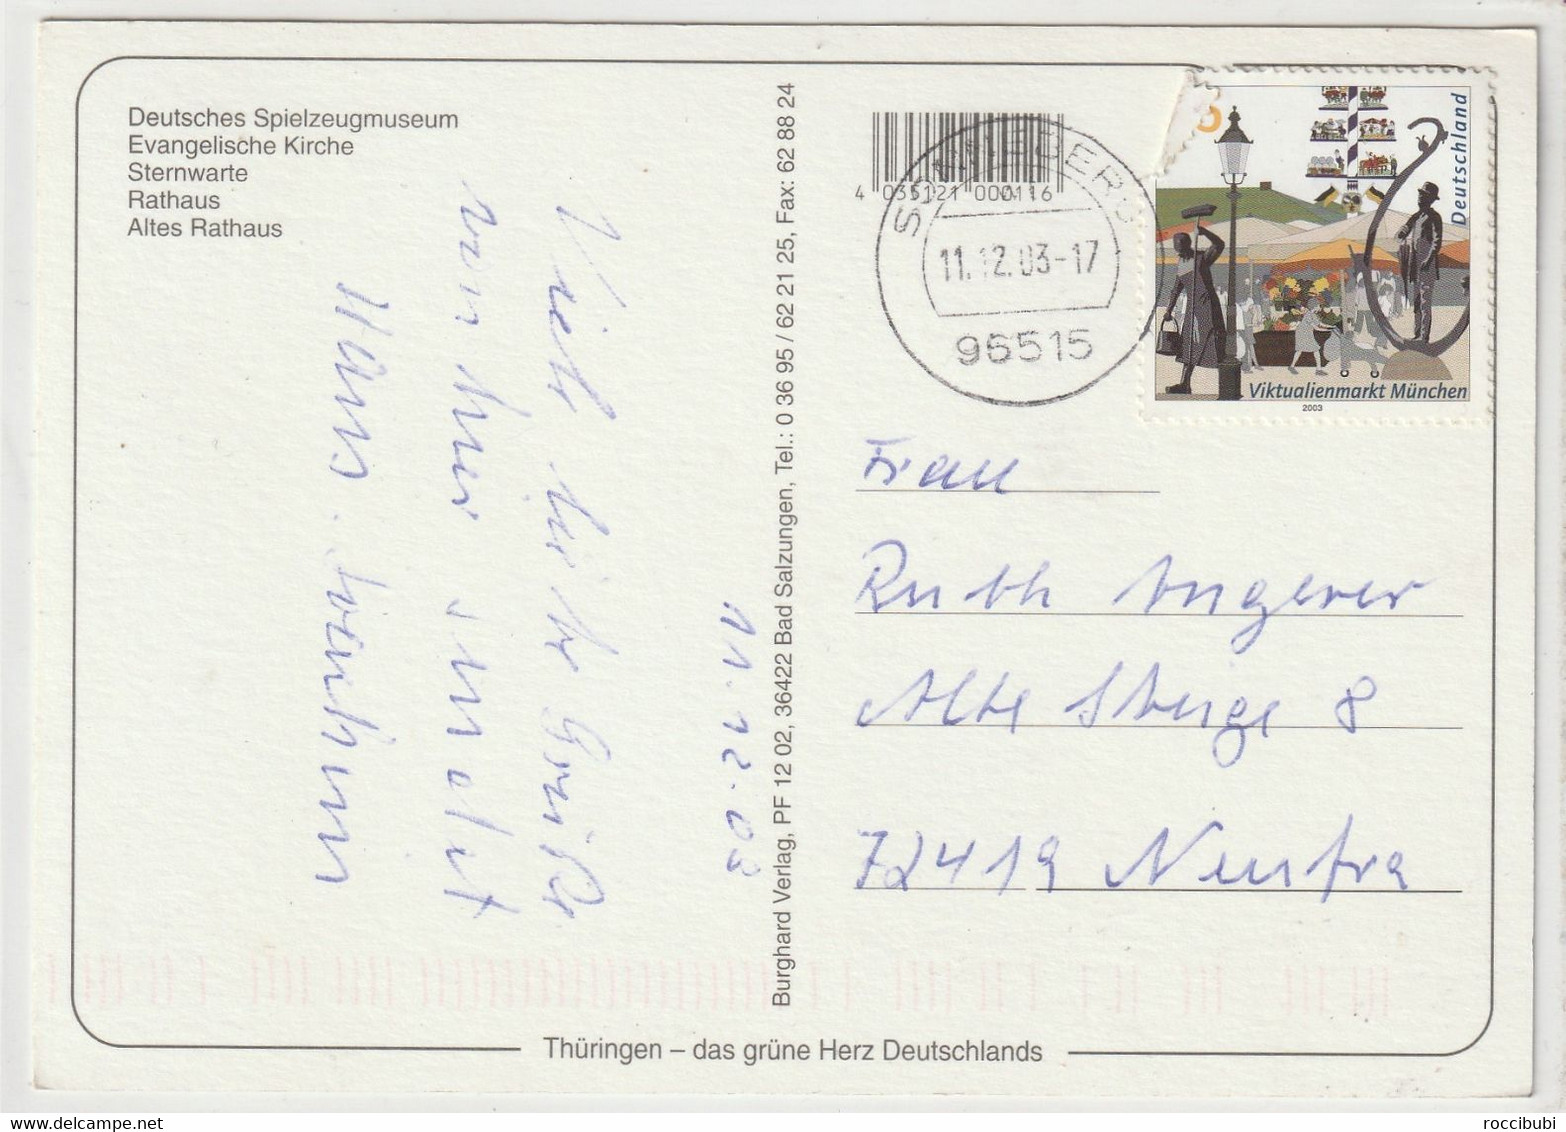 Deutsches Spielzeugmuseum
Evangelische Kirche
Sternwarte
Rathaus
Altes Rathaus
Viele liebe Grüße
von hier sendet
11.12.03
Burghard Verlag, PF 12 02, 36422 Bad Salzungen, Tel.: 0 36 95 / 62 21 25, Fax: 62 88 24
4 035121 000116
11.12.03-17
96515
Deutschland
Viktualienmarkt München
2003
Frau
Ruth Angerer
Alte Steige 8
72419 Neufra
Thüringen – das grüne Herz Deutschlands
roccibubi